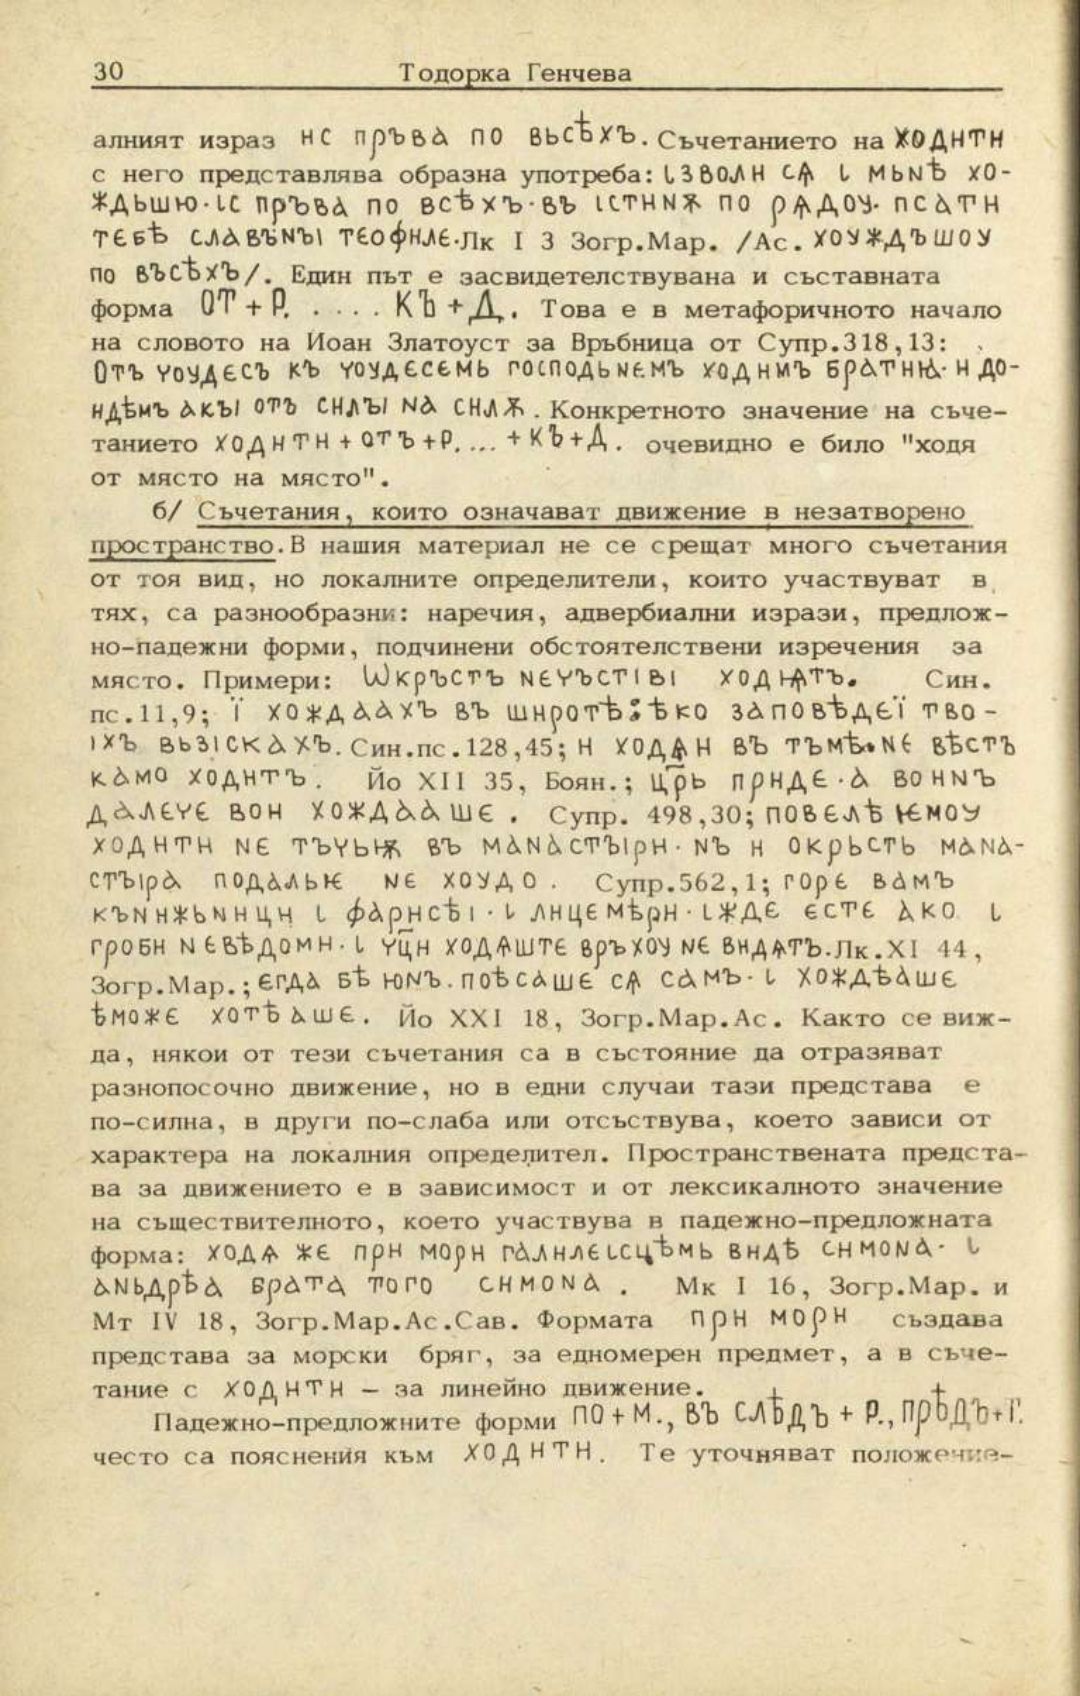 30 Тодорка Генчева
алният израз ис прьва по вьсѣхъ. Съчетанието на ходити
с него представлява образна употреба: ꙇзволи сѧ ꙇ мьнѣ хо-
ждьшю·ꙇс пръва по всѣхъ·въ ꙇстинѫ по рѧдоу· псати
тебѣ славънъі теофиле·Лк I 3 Зогр.Мар. /Ас. хоуждъшоу
по въсѣхъ/. Един път е засвидетелствувана и съставната
форма от + Р. . . . . къ + Д. Това е в метафоричното начало
на словото на Йоан Златоуст за Връбница от Супр.318,13:
Отъ чоудесъ къ чоудесемь господьнемъ ходимъ братиꙗ· и до-
идѣмъ акъі отъ силъі на силѫ. Конкретното значение на съче-
танието ходити + отъ + Р. ... + къ + Д. очевидно е било "ходя
от място на място".
б/ Съчетания, които означават движение в незатворено
пространство. В нашия материал не се срещат много съчетания
от тоя вид, но локалните определители, които участвуват в
тях, са разнообразни: наречия, адвербиални изрази, предлож-
но-падежни форми, подчинени обстоятелствени изречения за
място. Примери: Ѡкръстъ нечъстіві ходѩтъ. Син.
пс.11,9; ї хождаахъ въ широтѣ:ѣко заповѣдеї тво-
іхъ вьзіскахъ. Син.пс.128,45; и ходѧи въ тъмѣ·не вѣстъ
камо ходитъ. Йо XII 35, Боян.; цр҃ь приде·а воинъ
далече вон хождааше. Супр. 498,30; повелѣ ѥмоу
ходити не тъчьѭ въ манастъіри·нъ и окрьсть мана-
стъіра подальѥ не хоудо. Супр.562,1; горе вамъ
кънижьници ꙇ фарисѣі·ꙇ лицемѣри·ꙇжде есте ѣко ꙇ
гроби невѣдоми·ꙇ чц҃и ходѧште връхоу не видѧтъ.Лк.XI 44,
Зогр.Мар.; егда бѣ юнъ.поѣсаше сѧ самъ·ꙇ хождѣаше
ѣможе хотѣаше. Йо XXI 18, Зогр.Мар.Ас. Както се виж-
да, някои от тези съчетания са в състояние да отразяват
разнопосочно движение, но в едни случаи тази представа е
по-силна, в други по-слаба или отсъствува, което зависи от
характера на локалния определител. Пространствената предста-
ва за движението е в зависимост и от лексикалното значение
на съществителното, което участвува в падежно-предложната
форма: ходѧ же при мори галилеꙇсцѣмь видѣ симона·ꙇ
аньдрѣа брата того симона. Мк I 16, Зогр.Мар. и
Мт IV 18, Зогр.Мар.Ас.Сав. Формата при мори създава
представа за морски бряг, за едномерен предмет, а в съче-
тание с ходити – за линейно движение.
Падежно-предложните форми по + М., въ слѣдъ + Р., прѣдъ+Т.
често са пояснения към ходити. Те уточняват положение-